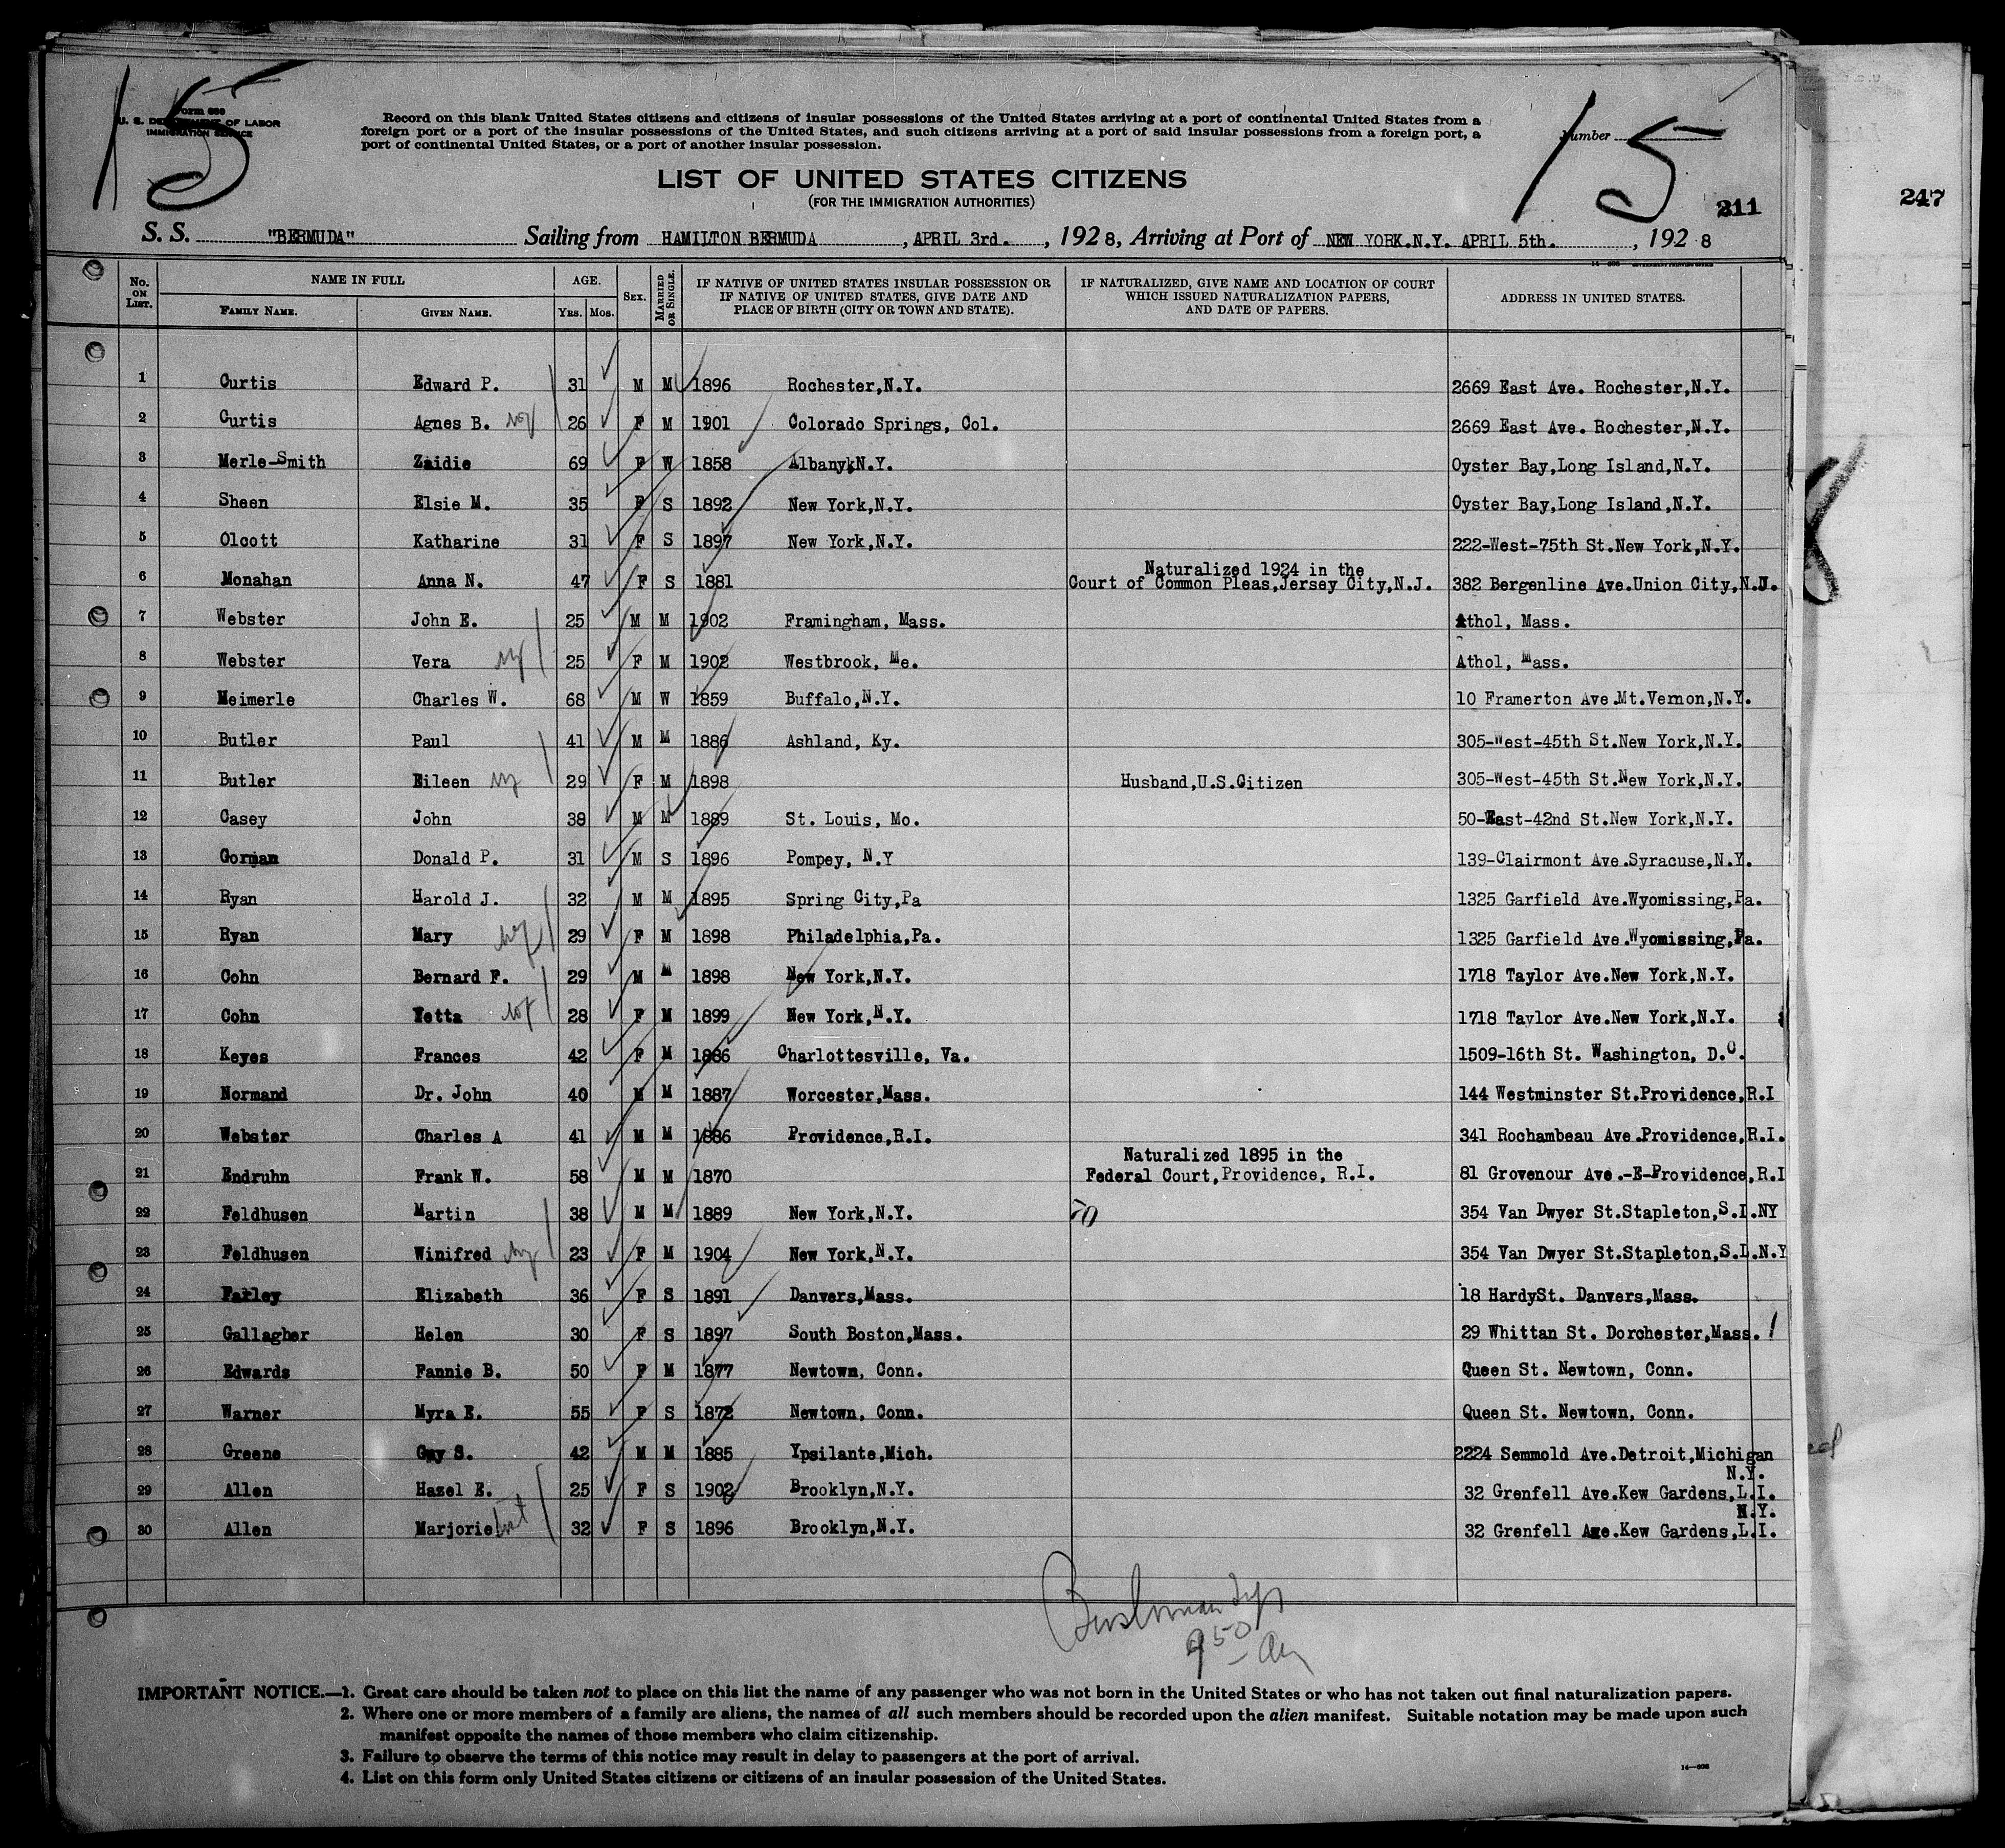 15
Form 630
U. S. DEPARTMENT OF LABOR
IMMIGRATION SERVICE
Record on this blank United States citizens and citizens of insular possessions of the United States arriving at a port of continental United States from a
foreign port or a port of the insular possessions of the United States, and such citizens arriving at a port of said insular possessions from a foreign port, a
port of continental United States, or a port of another insular possession.
Number
15
LIST OF UNITED STATES CITIZENS
(FOR THE IMMIGRATION AUTHORITIES)
211
247
S. S. "BERMUDA" Sailing from HAMILTON BERMUDA, APRIL 3rd., 1928, Arriving at Port of NEW YORK.N.Y. APRIL 5th., 1928
No. ON LIST. NAME IN FULL FAMILY NAME. GIVEN NAME. AGE. YRS. MOS. SEX. MARRIED OR SINGLE. IF NATIVE OF UNITED STATES INSULAR POSSESSION OR IF NATIVE OF UNITED STATES, GIVE DATE AND PLACE OF BIRTH (CITY OR TOWN AND STATE). IF NATURALIZED, GIVE NAME AND LOCATION OF COURT WHICH ISSUED NATURALIZATION PAPERS, AND DATE OF PAPERS. ADDRESS IN UNITED STATES.
1 Curtis Edward P. 31 M M 1896 Rochester,N.Y. 2669 East Ave. Rochester,N.Y.
2 Curtis Agnes B. 26 F M 1901 Colorado Springs, Col. 2669 East Ave. Rochester,N.Y.
3 Merle-Smith Zaidie 69 F W 1858 Albany,N.Y. Oyster Bay,Long Island,N.Y.
4 Sheen Elsie M. 35 F S 1892 New York,N.Y. Oyster Bay,Long Island,N.Y.
5 Olcott Katharine 31 F S 1897 New York,N.Y. 222-West-75th St.New York,N.Y.
6 Monahan Anna N. 47 F S 1881 Naturalized 1924 in the Court of Common Pleas,Jersey City,N.J. 382 Bergenline Ave.Union City,N.J.
7 Webster John E. 25 M M 1902 Framingham, Mass. Athol, Mass.
8 Webster Vera 25 F M 1902 Westbrook, Me. Athol, Mass.
9 Meimerle Charles W. 68 M W 1859 Buffalo,N.Y. 10 Framerton Ave.Mt.Vernon,N.Y.
10 Butler Paul 41 M M 1886 Ashland, Ky. 305-West-45th St.New York,N.Y.
11 Butler Eileen 29 F M 1898 Husband,U.S.Citizen 305-West-45th St.New York,N.Y.
12 Casey John 38 M M 1889 St. Louis, Mo. 50-East-42nd St.New York,N.Y.
13 Gorman Donald P. 31 M S 1896 Pompey, N.Y 139-Clairmont Ave.Syracuse,N.Y.
14 Ryan Harold J. 32 M M 1895 Spring City,Pa 1325 Garfield Ave.Wyomissing,Pa.
15 Ryan Mary 29 F M 1898 Philadelphia,Pa. 1325 Garfield Ave.Wyomissing,Pa.
16 Cohn Bernard F. 29 M M 1898 New York,N.Y. 1718 Taylor Ave.New York,N.Y.
17 Cohn Yetta 28 F M 1899 New York,N.Y. 1718 Taylor Ave.New York,N.Y.
18 Keyes Frances 42 F M 1886 Charlottesville, Va. 1509-16th St. Washington, D.C.
19 Normand Dr. John 40 M M 1887 Worcester,Mass. 144 Westminster St.Providence,R.I
20 Webster Charles A 41 M M 1886 Providence,R.I. 341 Rochambeau Ave.Providence,R.I.
21 Endruhn Frank W. 58 M M 1870 Naturalized 1895 in the Federal Court,Providence, R.I. 81 Grovenour Ave.-E-Providence,R.I
22 Feldhusen Martin 38 M M 1889 New York,N.Y. 70 354 Van Dwyer St.Stapleton,S.I.NY
23 Feldhusen Winifred 23 F M 1904 New York,N.Y. 354 Van Dwyer St.Stapleton,S.I.N.Y
24 Farley Elizabeth 36 F S 1891 Danvers,Mass. 18 HardySt. Danvers,Mass.
25 Gallagher Helen 30 F S 1897 South Boston,Mass. 29 Whittan St. Dorchester,Mass.
26 Edwards Fannie B. 50 F M 1877 Newtown, Conn. Queen St. Newtown, Conn.
27 Warner Myra E. 55 F S 1872 Newtown, Conn. Queen St. Newtown, Conn.
28 Greene Guy S. 42 M M 1885 Ypsilante,Mich. 2224 Semmold Ave.Detroit,Michigan
29 Allen Hazel E. 25 F S 1902 Brooklyn,N.Y. 32 Grenfell Ave.Kew Gardens,L.I. N.Y.
30 Allen Marjorie 32 F S 1896 Brooklyn,N.Y. 32 Grenfell Ave.Kew Gardens,L.I. N.Y.
950
IMPORTANT NOTICE.—1. Great care should be taken not to place on this list the name of any passenger who was not born in the United States or who has not taken out final naturalization papers.
2. Where one or more members of a family are aliens, the names of all such members should be recorded upon the alien manifest. Suitable notation may be made upon such
manifest opposite the names of those members who claim citizenship.
3. Failure to observe the terms of this notice may result in delay to passengers at the port of arrival.
4. List on this form only United States citizens or citizens of an insular possession of the United States.